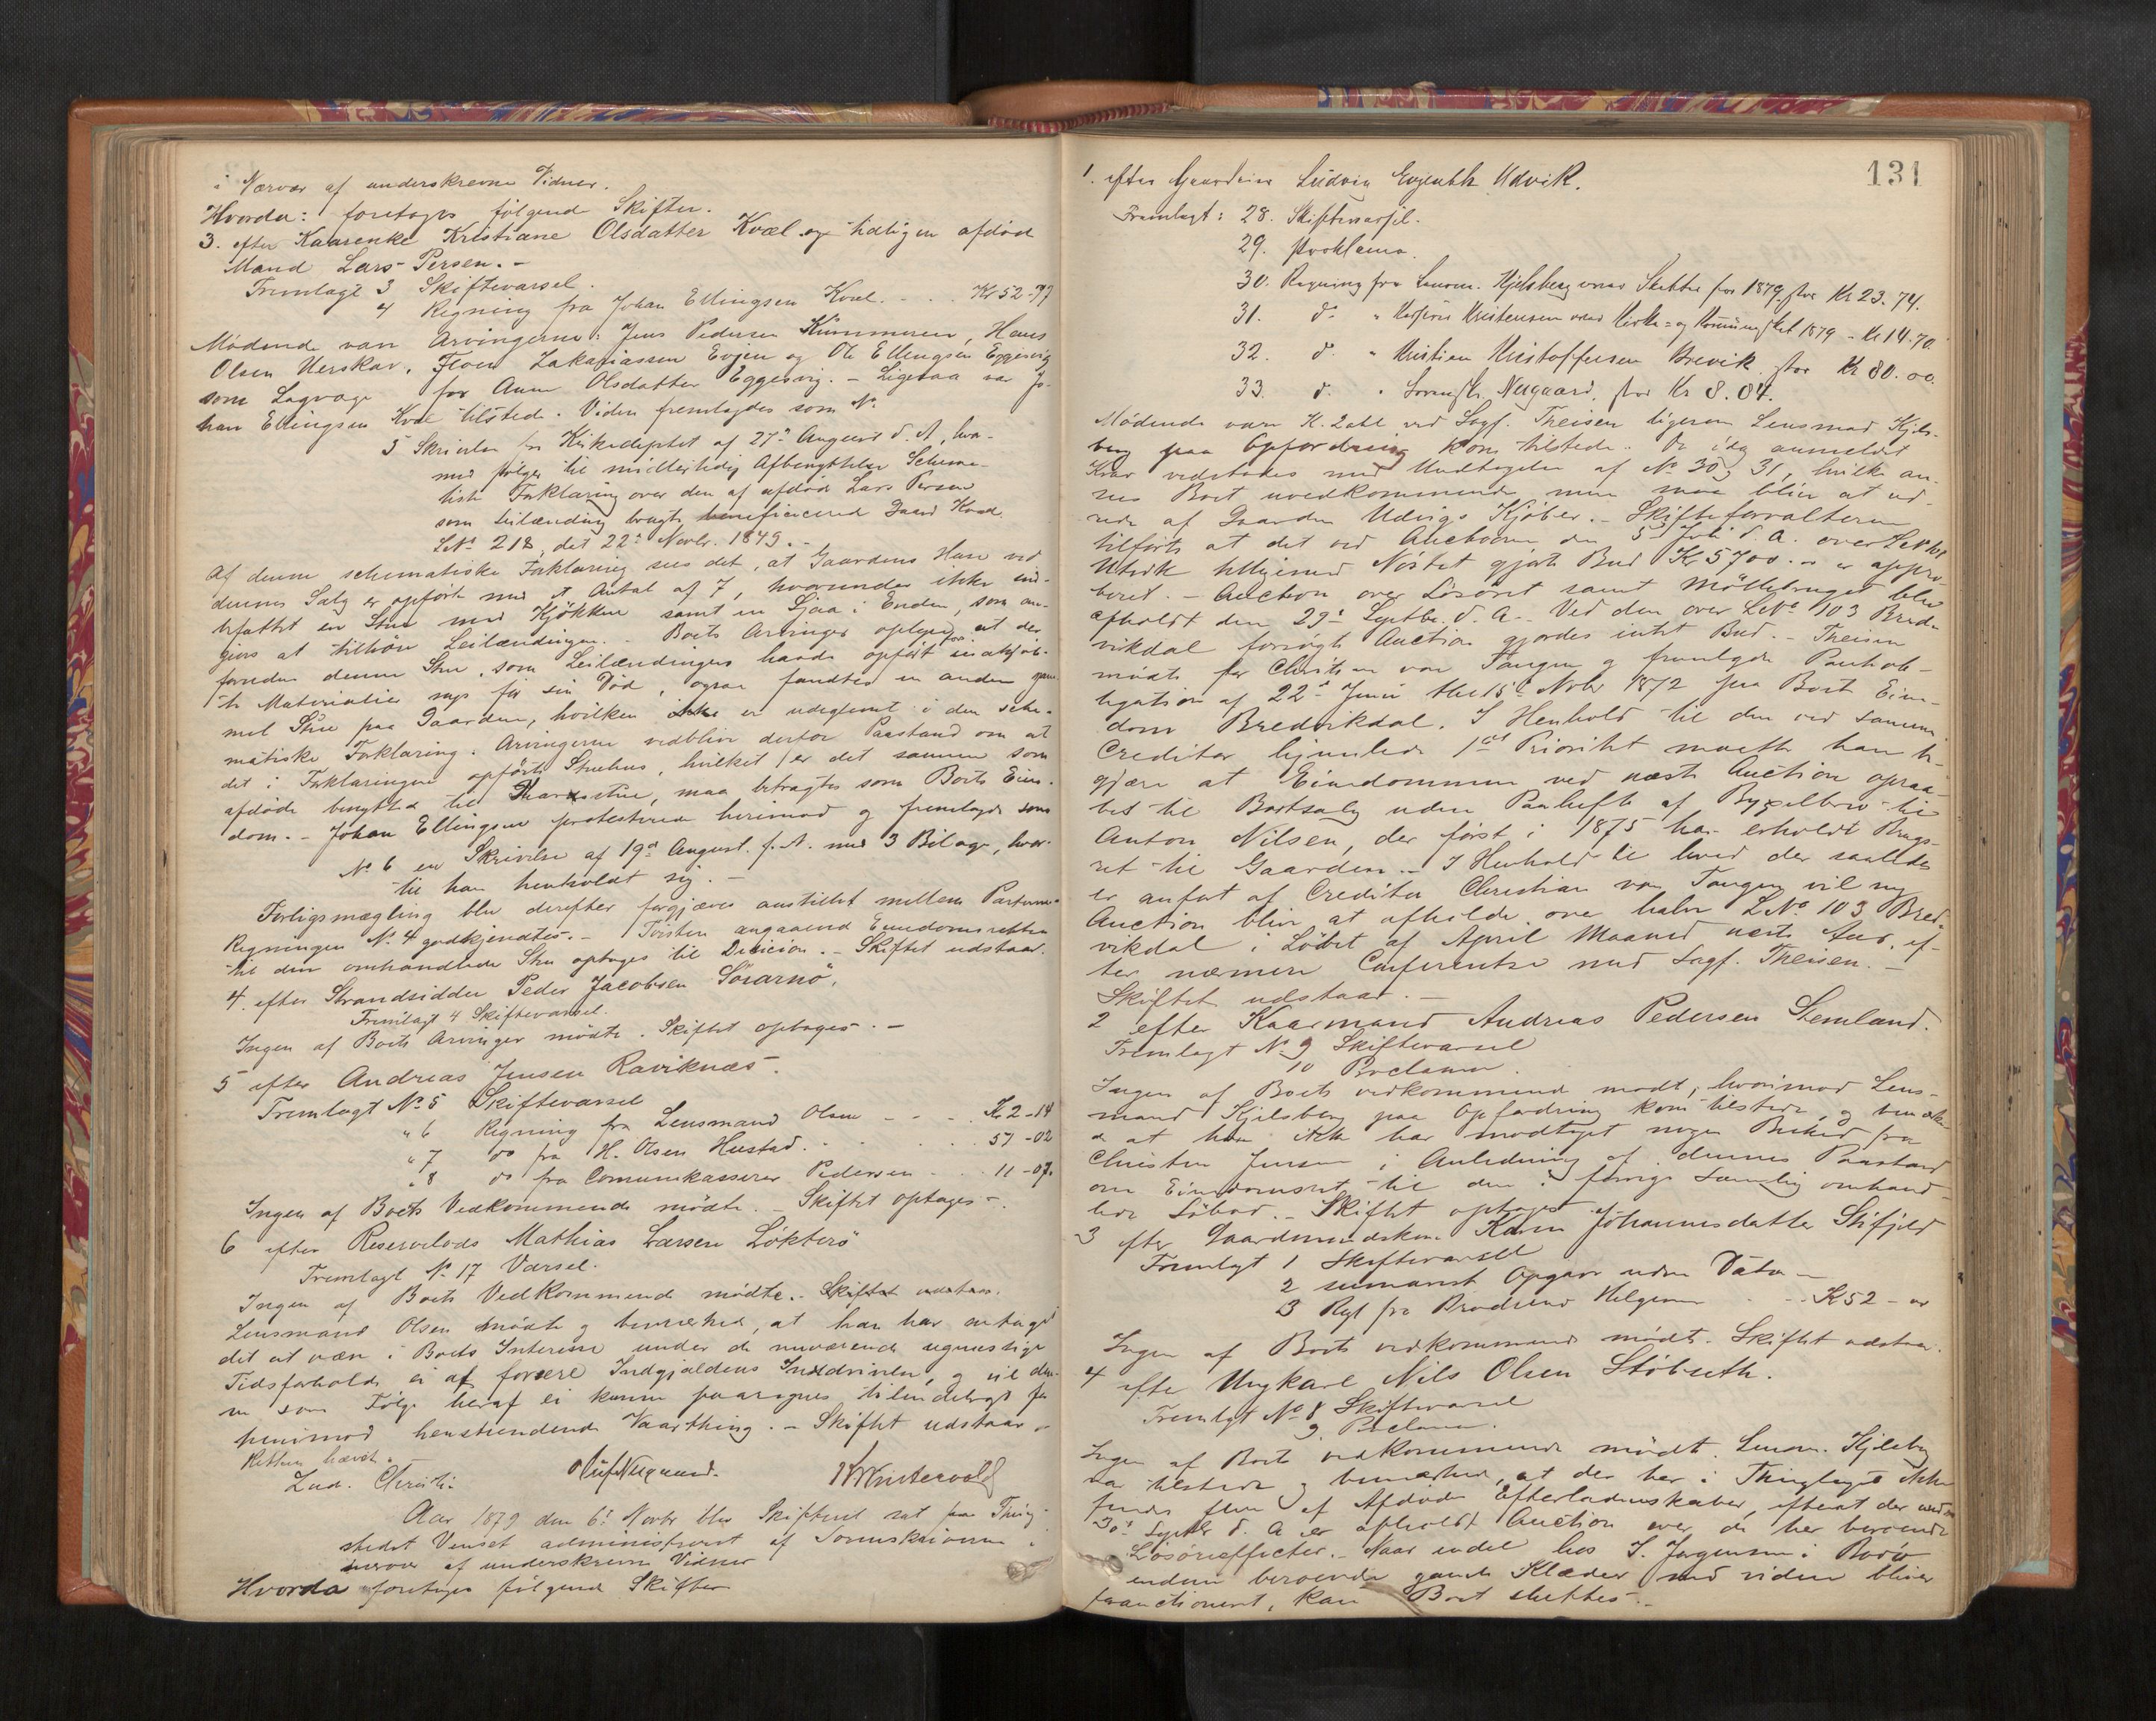 i Nærvær af underskrevne Vidner.
Hvorda: foretoges følgende Skifter.
3. efter Kaarenke Kristiane Olsdatter Kvæl og tidligere afdøde
Mand Lars Persen. -
Fremlagt 3 Skiftevarsel.
4 Regning fra Johan Ellingsen Kvæl. - - - Kr 52-97
Mødende vare Arvingerne: Jens Pedersen Kummeren, Hans
Olsen Uerskar, Zakariassen Evjen og Ole Ellingsen Eggesvig
som Lagværge for Anne Olsdatter Eggesvig. - Ligesaa var Jo-
han Ellingsen Kvæl tilstede. Videre fremlagdes som No
5 Skrivelse fra Kirkedeptet af 27de August d. A, hvor-
med følger til midlertidig Afbenyttelse Schema-
tisk Forklaring over den af afdøde Lars Persen
som Leilænding brugte beneficerede Gaard Kvæl
LNo 218, det 22de Novbr. 1849. -
Af denne schematiske Forklaring sees det, at Gaardens Huse ved
dennes Salg er opført med et Antal af 7, hvorunder ikke ind-
befattet en Stue med Kjøkken samt en Sjaa i Enden, som an-
gives at tilhøre Leilændingen. - Boets Arvinger oplyse, at der
foruden denne Stue, som Leilændingen havde opført for indkjøb-
te Materialier nogt før sin Død, ogsaa fandtes en anden gam-
mel Stue paa Gaarden, hvilken ikke er udeglemt i den sche-
matiske Forklaring. Arvingerne vedbliver derfor Paastand om at
det i Forklaringen opførte Stuehus, hvilket er det samme som
afdøde benyttet til Kaarstue, maa betragtes som Boets Eien-
dom. - Johan Ellingsen protesterede herimod og fremlagde som
No 6 en Skrivelse af 19de August f. A. med 3 Bilage, hvor-
til han henholdt sig. -
Forligsmægling blev derefter forgjæves anstillet mellem Parterne.
Regningen No. 4 godkjendtes. - Tvisten angaaende Eiendomsretten
til den omhandlede Stue optages til Decision. - Skiftet udstaar.
4. efter Strandsidder Peder Jacobsen Sørarnø.
Fremlagt 4 Skiftevarsel.
Ingen af Boets Arvinger mødte. Skiftet optages. -
5 efter Andreas Jensen Raviknæs.
Fremlagt No 5 Skiftevarsel
" 6 Regning fra Lensmand Olsen - - - Kr 2-14
" 7 do fra H. Olsen Hustad. - - - 57-02
" 8 do fra Comunekasserer Pedersen - - - 11-07.
Ingen af Boets Vedkommende mødte. - Skiftet optages -.
6 efter Reservelods Mathias Larsen Løkterø
Fremlagt No. 17 Varsel.
Ingen af Boets Vedkommende mødte. - Skiftet udstaar.
Lensmand Olsen mødte og bemærkede, at han har antaget
det at være i Boets Interesse under de nuværende ugunstige
Tidsforholde ei at forcere Indgjældens Inddrivelse, og vil den-
ne som Følge heraf ei kunne paaregnes tilendebragt før
henimod henstundende Vaarthing. - Skiftet udstaar. -
Retten hævet. -
Lud. Christi. Oluf Nergaard. K Winterwold
Aar 1879 den 6te Novbr blev Skifteret sat paa Thing-
stedet Venset administreret af Sorenskriveren i
Nærvær af underskrevne Vidner
Hvorda foretoges følgende Skifter
131
1. efter Gaardeier Ludvig Engenth Udvik.
Fremlagt: 28. Skiftevarsel.
29. Proklama.
30. Regning fra Lensm. Kjelsberg over Skatter for 1879, stor Kr 23.74.
31. do " Kristensen over Kirke- og Kommuneskat 1879 - Kr 14.70.
32. do " Kristian Kristoffersen Brevik stor Kr 80.00.
33. do " Nergaard, stor Kr 8.04.
Mødende vare K. Zahl ved Sagf. Theisen ligesom Lensmand Kjels-
berg paa Opfordring kom tilstede. De idag anmeldte
Krav vedtoges med Undtagelse af No 30 & 31, hvilke an-
sees Boet uvedkommende men maa blive at ud-
rede af Gaarden Udvigs Kjøber. - Skifteforvalteren
tilførte at det ved Auctionen den 5te Juli d. A. over LNo
Utvik tilligemed Nøstet gjorte Bud Kr 5700.00 er appro-
beret. - Auction over Løsøret samt Møllebruget blev
afholdt den 29de Septbr. d. A. - Ved den over LNo 103 Bred-
vikdal forsøgte Auction gjordes intet Bud. - Theisen
mødte for Christian von Tangen og fremlagde Panteob-
ligation af 22de Juni thl 15de Novbr 1872 paa Boets Eien-
dom Bredvikdal. I Henhold til den ved samme
Creditor hjemlede 1ste Prioritet maatte han be-
gjære at Eiendommen ved næste Auction opraa-
bes til Bortsalg uden Paahefte af Bygselbrev til
Anton Nilsen, der først i 1875 har erholdt Brugs-
ret til Gaarden. - I Henhold til hvad der saaledes
er anført af Creditor Christian von Tangen vil ny
Auction blive at afholde over halve LNo 103 Bred-
vikdal i Løbet af April Maaned næste Aar, ef-
ter nærmere Conferentse med Sagf. Theisen. -
Skiftet udstaar. -
2 efter Kaarmand Andreas Pedersen Stemland.
Fremlagt No 9 Skiftevarsel
10 Proclama.
Ingen af Boets vedkommende mødt; hvorimod Lens-
mand Kjelsberg paa Opfordring kom tilstede, og bemærke-
de at han ikke har modtaget nogen Besked fra
Christen Jensen i Anledning af dennes Paastand
om Eiendomsret til den i forrige Samling omhand-
lede Søbod. - Skiftet optages.
3 efter Gaardmandskone Karen Johannesdatter Stifjeld
Fremlagt 1 Skiftevarsel
2 summarisk Opgave uden Dato -
3 Regn. fra Brødrene Helgesen - - - Kr 52 - "
Ingen af Boets vedkommende mødte. Skiftet udstaar.
4 efter Ungkarl Nils Olsen Støbseth.
Fremlagt No 8 Skiftevarsel
9. Proclama.
Ingen af Boets vedkommende mødt. Lensm. Kjelsberg
var tilstede og bemærkede, at der her i Thinglaget ikke
findes flere af Afdødes Efterladenskaber, efterat der under
30te Septbr d. A. er afholdt Auction over de her beroende
Løsøreeffecter. - Naar endel hos J. Jørgensen i Bodø
endnu beroende gamle Klæder ved siden bliver
bortauctioneret, kan Boet sluttes. -